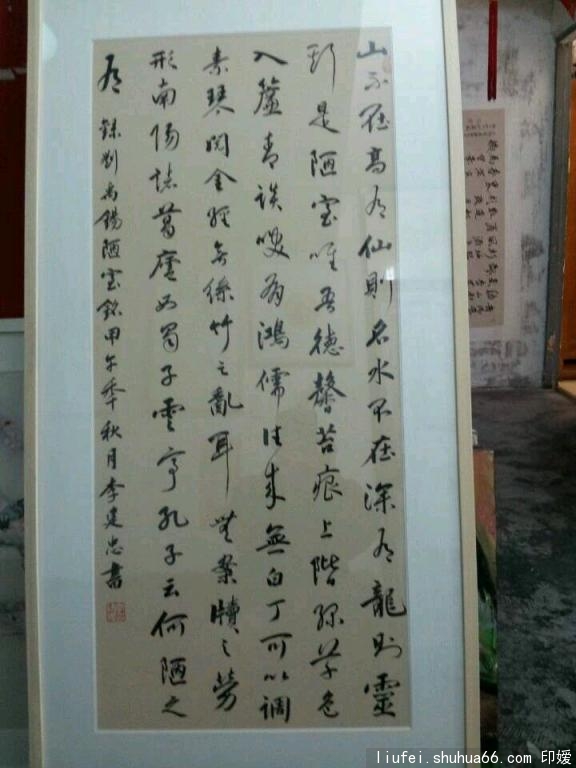 山不在高有仙則名水不在深有龍則靈
斯是陋室唯吾德馨苔痕上階綠草色
入簾青談咲有鴻儒往来無白丁可以調
素琴閱金經無絲竹之亂耳無案牘之勞
形南陽諸葛廬西蜀子雲亭孔子云何陋之
有 錄劉禹錫陋室銘甲午年秋月李建忠書
liufei.shuhua66.com 印媛